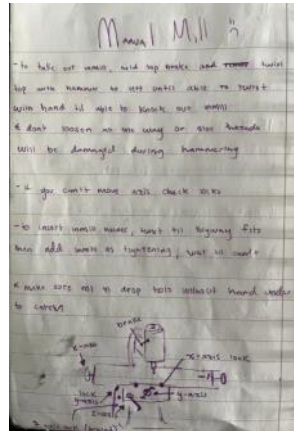 Manual Mill
- to take out endmill, hold top brake and twist
top with hammer to left until able to twist
with hand til able to knock out endmill
* don't loosen all the way or else threads
will be damaged during hammering
- if you can't move axis check locks
- to insert endmill holder, twist til keyway fits
then add while tightening, twist til can't
* make sure not to drop hold without hand under
to catch
brake
x-axis
x-axis lock
lock
y-axis
y-axis
z-axis